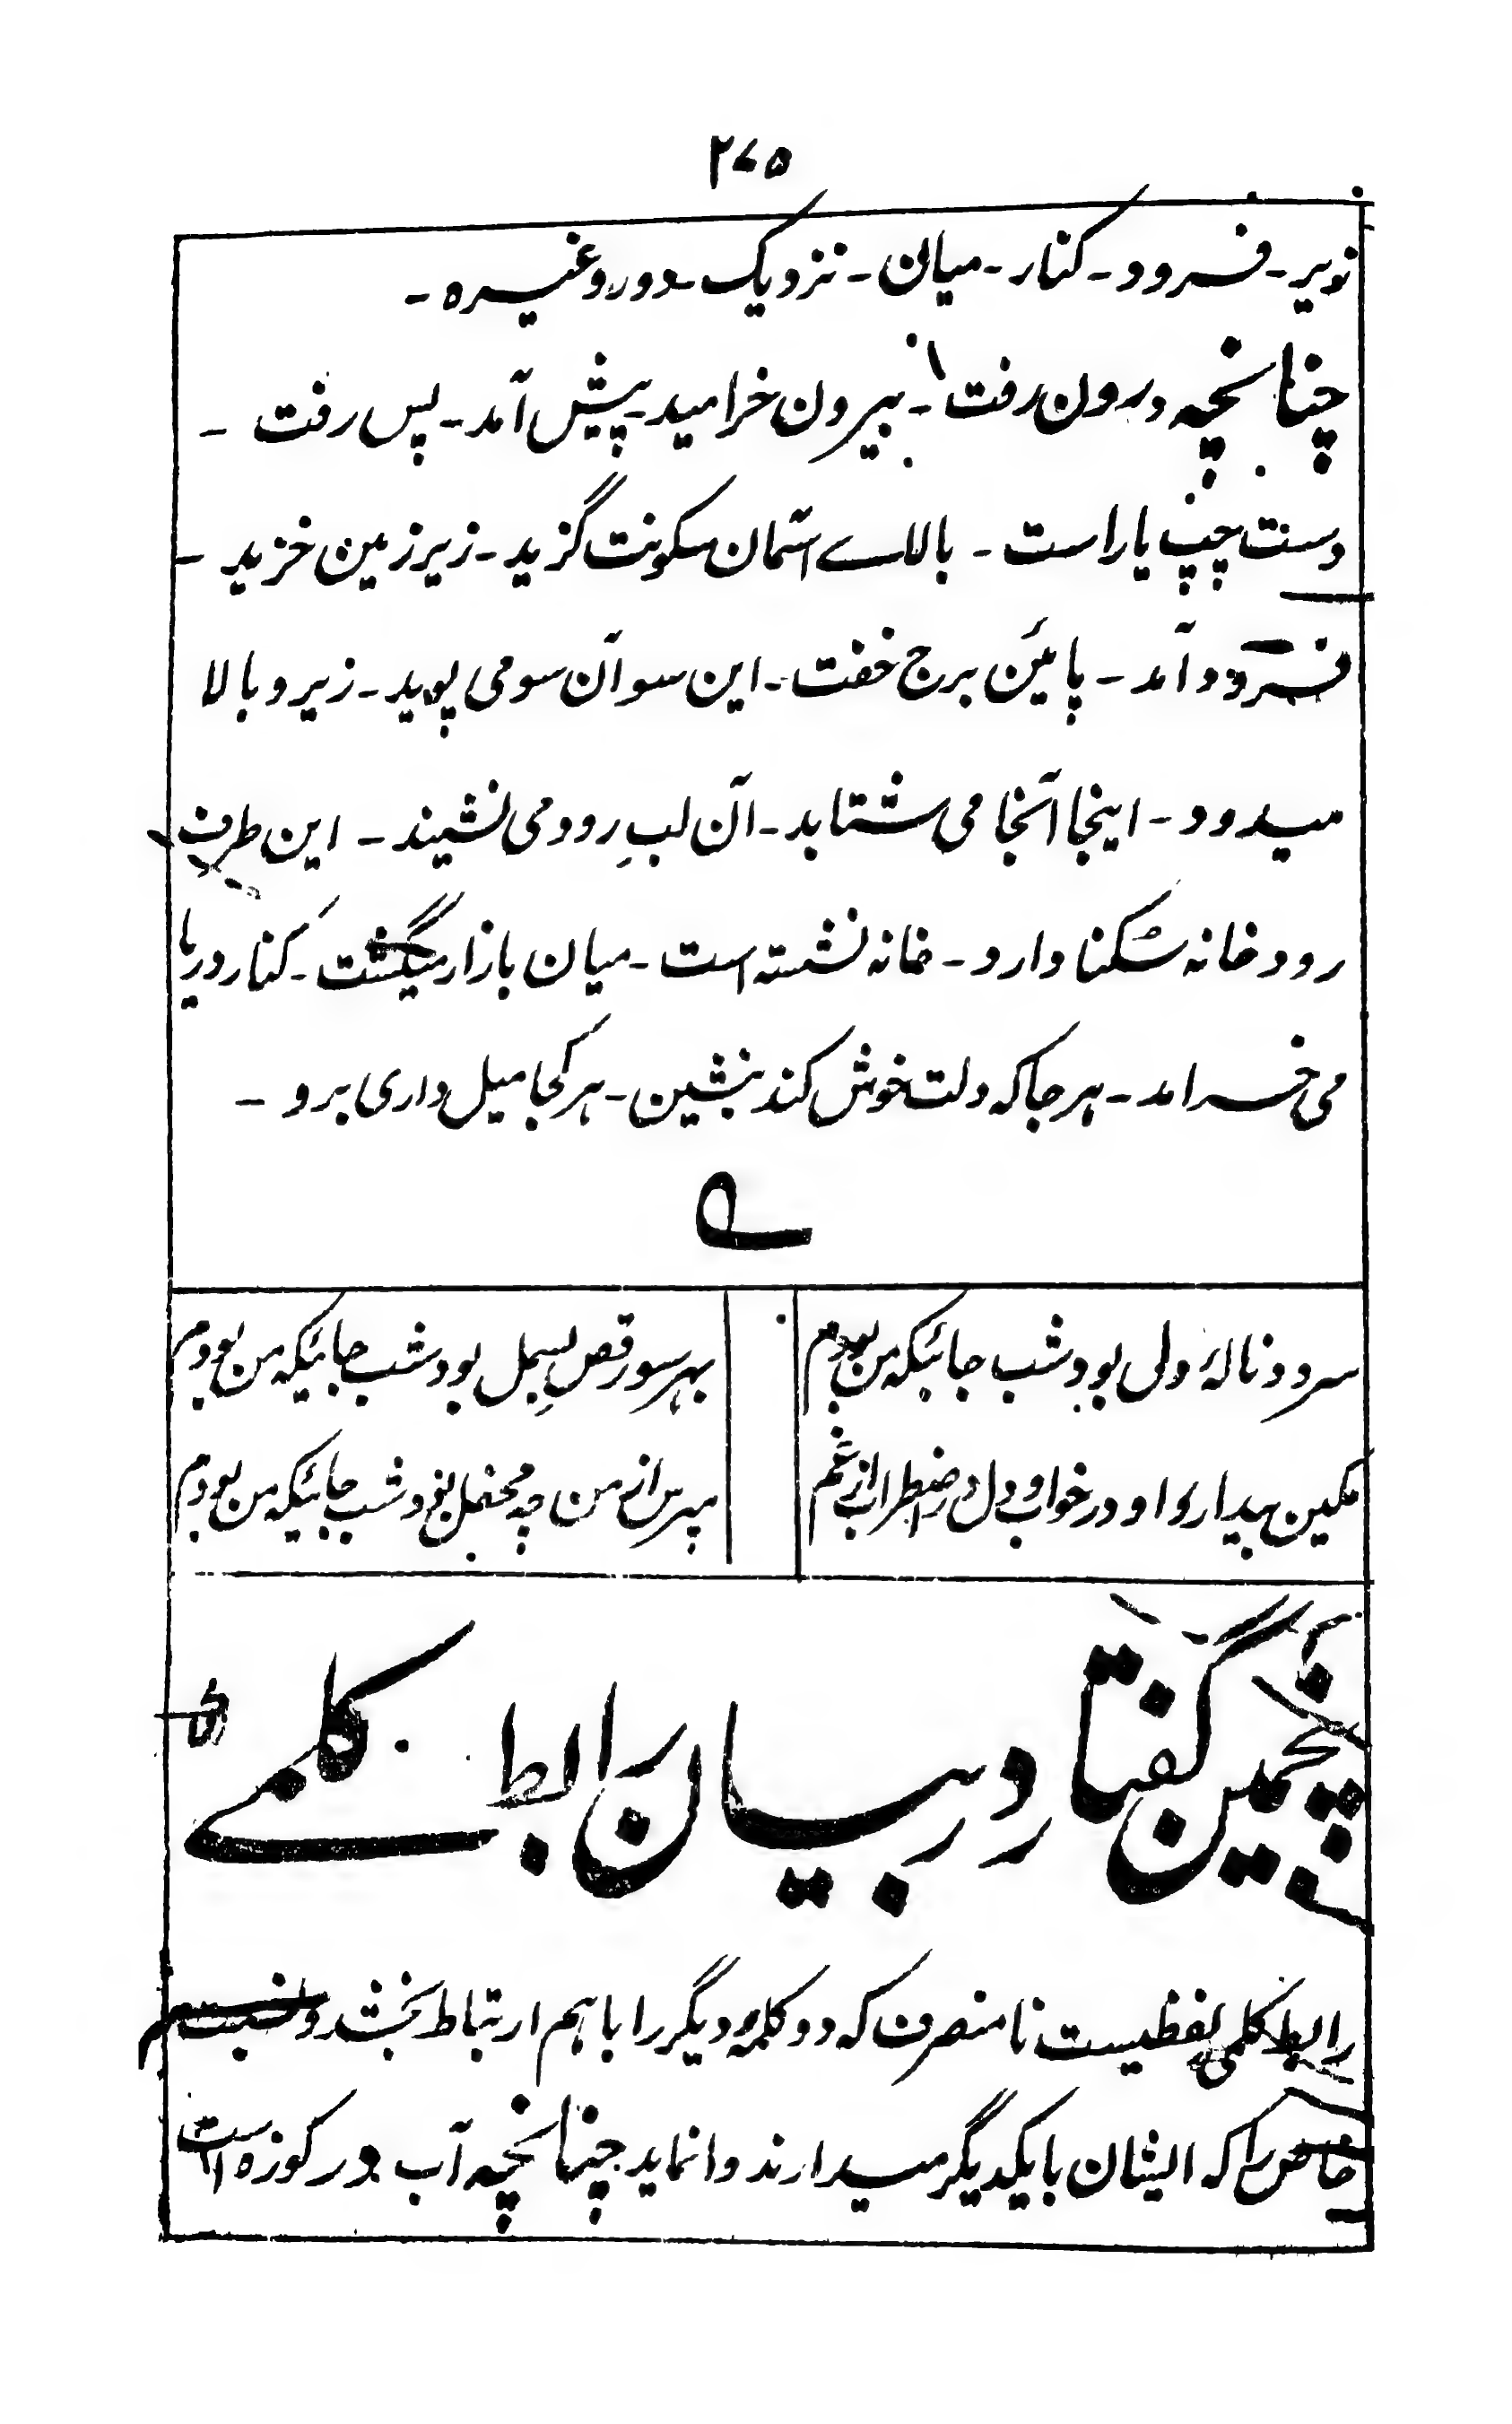 ۲۷۵
فرود - کنار - میان - نزدیک - دور وغیره -
چنانچه درون رفت - بیرون خرامید - پیش آمد - پس رفت -
دست چپ یا راست - بالاے آسمان سکونت گزید - زیر زمین خزید -
فرود آمد - پائین برج خفت - این سو آن سو می پوید - زیر و بالا
میدود - اینجا آنجا می شتابد - آن لبِ رود می نشیند - این طرف
رود خانه سُکنا دارد - خانه نشسته است - میان بازار میگشت - کنار دریا
می خرامد - هر جا که دلت خوش کند بنشین - هر کجا میل داری برو -
سرود نالهٔ ولی بود شب جائیکه من بودم
بهر سو رقص بسمِل بود شب جائیکه من بودم
مکین بیدار و او در خواب و دل در اضطراب از غم
مپرس از من چه محفل بود شب جائیکه من بودم
پنجمین گفتار در بیان رابط کلمے
رابط کلمی لفظیست نا منصرف که دو کلمهٔ دیگر را با هم ارتباط بخشد و نسبت
خاص را که ایشان با یکدیگر میدارند وا نماید چنانچه آب در کوزه است